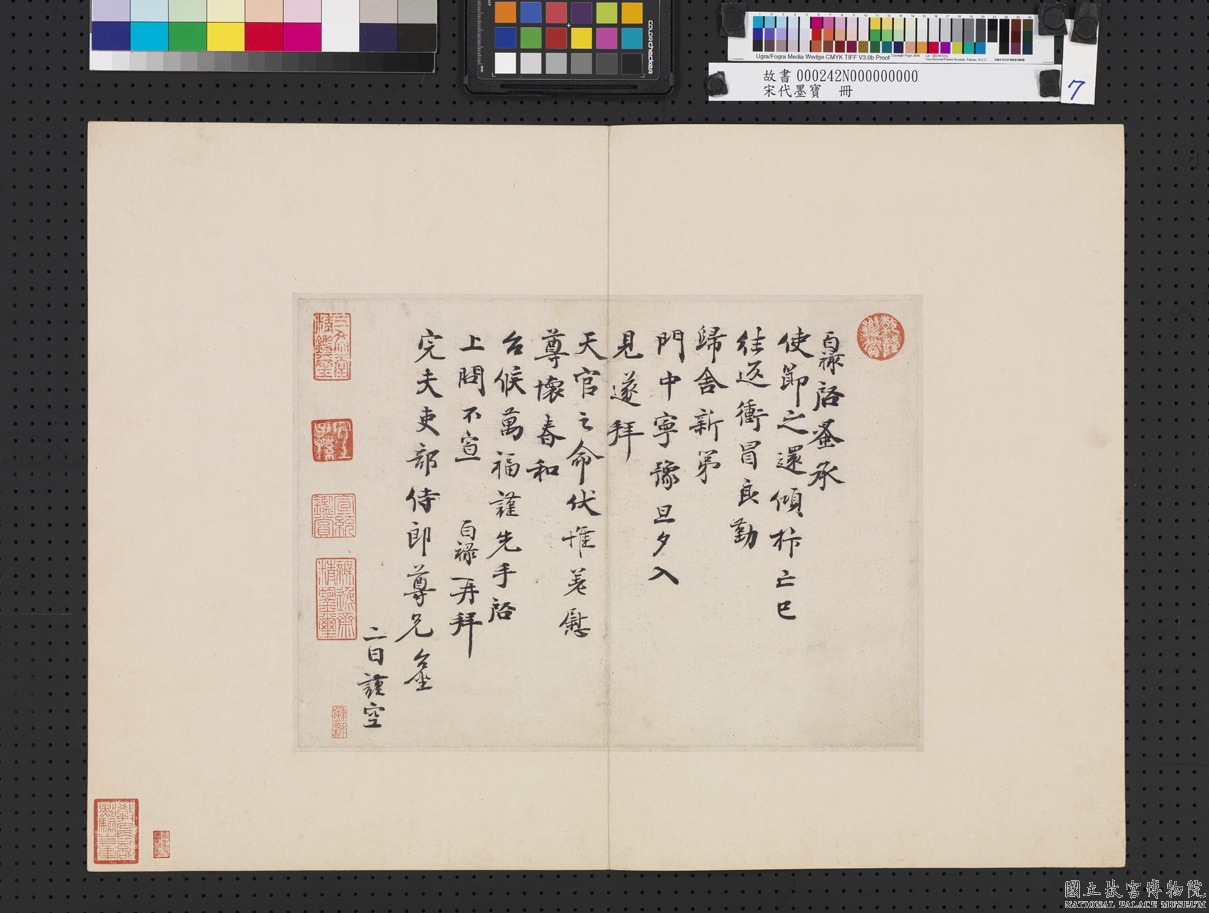 colorchecker
Ugra/Fogra Media Wedge CMYK TIFF V3.0b Proof
故書 000242N000000000
宋代墨寶 冊
7
百祿啓蚤承
使節之還傾
往返衝冒良勤
歸舍新第
門中寧豫旦夕入
見遂拜
天官之命伏惟差慰
尊懷春和
台候萬福謹先手啓
上問不宣 百祿再拜
完夫吏部侍郎尊兄台坐
二日謹空
國立故宮博物院
NATIONAL PALACE MUSEUM